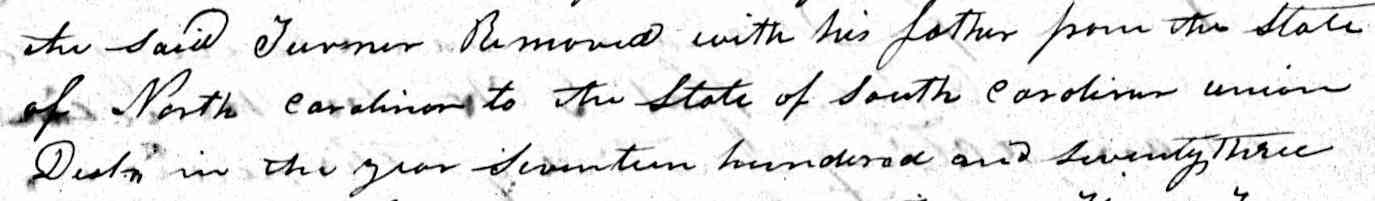 the said Turner Removed with his father from the State
of North Carolina to the State of South Carolina union
Dest in the year seventeen hundered and seventy three